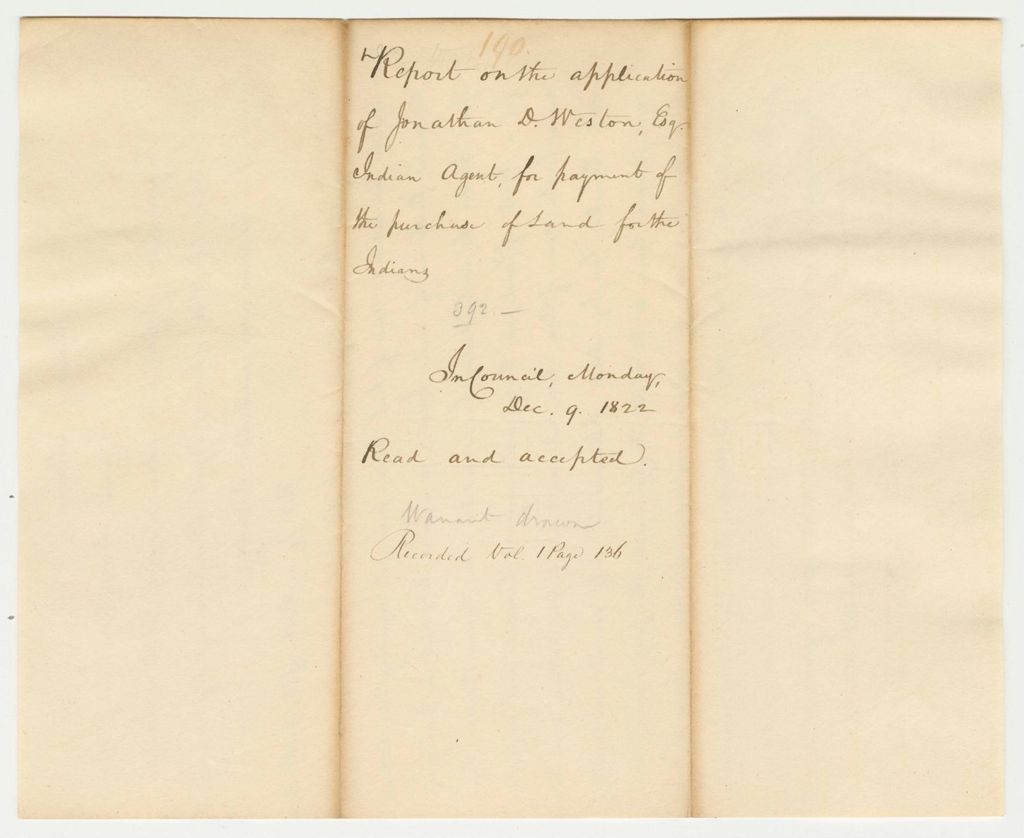 190.
Report on the application
of Jonathan D. Weston, Esq.
Indian Agent, for payment of
the purchase of Land for the
Indians
392.—
In Council, Monday,
Dec. 9. 1822
Read and accepted.
Warrant drawn
Recorded Vol. 1 Page 136